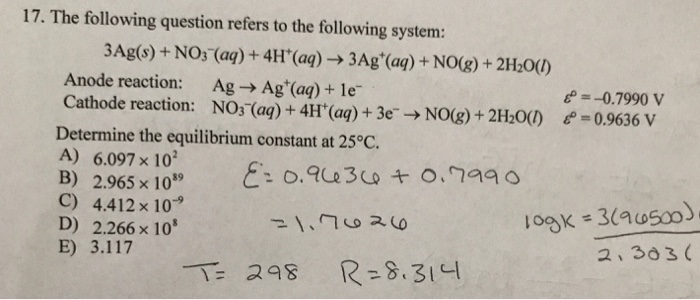 17. The following question refers to the following system:
3Ag(s) + NO₃⁻(aq) + 4H⁺(aq) → 3Ag⁺(aq) + NO(g) + 2H₂O(l)
Anode reaction: Ag → Ag⁺(aq) + 1e⁻ ℰ° = –0.7990 V
Cathode reaction: NO₃⁻(aq) + 4H⁺(aq) + 3e⁻ → NO(g) + 2H₂O(l) ℰ° = 0.9636 V
Determine the equilibrium constant at 25°C.
A) 6.097 × 10²
B) 2.965 × 10⁸⁹
C) 4.412 × 10⁻⁹
D) 2.266 × 10⁸
E) 3.117
ℰ = 0.9636 + 0.7990
= 1.7626
T = 298 R = 8.314
log K = 3(96500)
2.303(